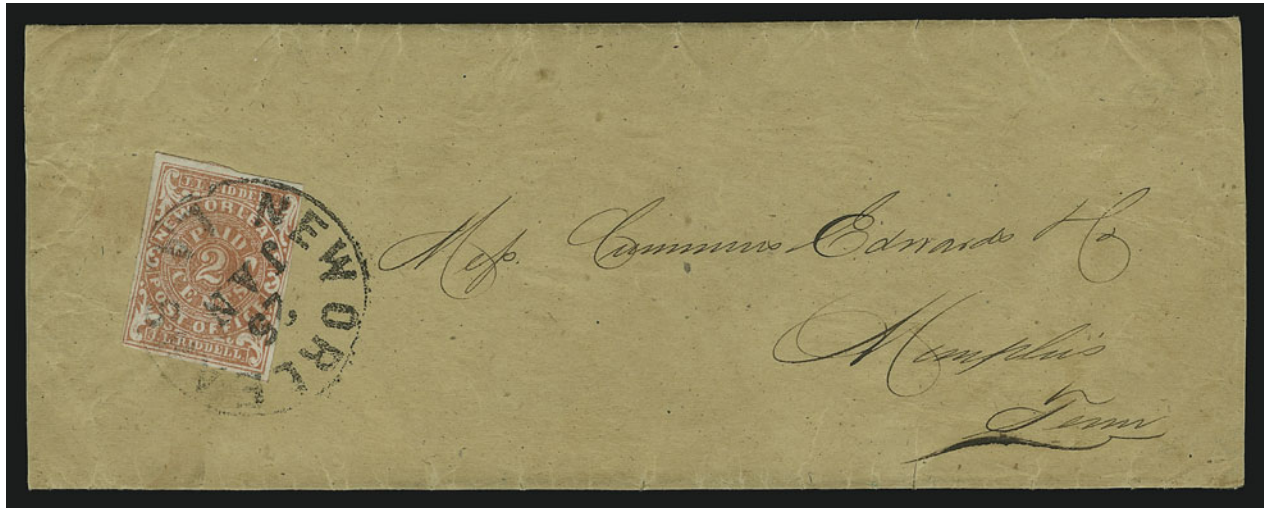 J.L. RIDDELL
NEW ORLEANS
PAID
2
CENTS
POST OFFICE
J.L. RIDDELL
NEW ORLEANS
JAN
Mess. Cummins Edwards & Co
Memphis
Tenn